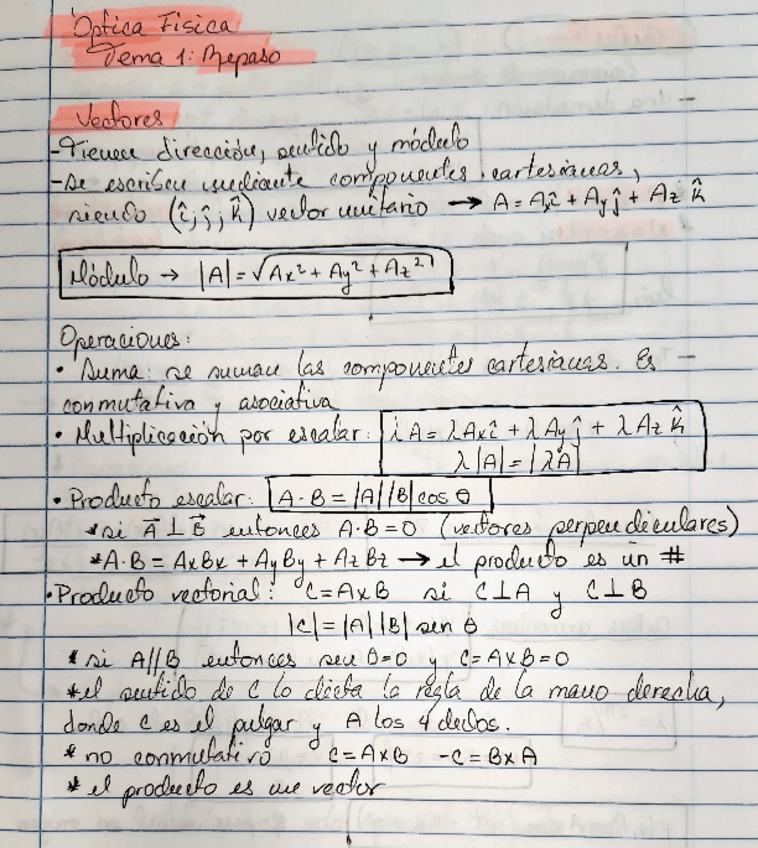 Óptica Física
Tema 1: Repaso
Vectores
-Tienen dirección, sentido y módulo
-Se escriben mediante componentes cartesianas,
siendo (î, ĵ, k̂) vector unitario → A = Axî + Ayĵ + Az k̂
Módulo → |A| = √Ax² + Ay² + Az²
Operaciones:
• Suma: se suman las componentes cartesianas. Es
conmutativa y asociativa
• Multiplicación por escalar: λA = λAxî + λAy ĵ + λAz k̂
λ|A| = |λA|
• Producto escalar: A · B = |A||B| cos θ
* si A⃗ ⊥ B⃗ entonces A·B = 0 (vectores perpendiculares)
* A·B = AxBx + AyBy + AzBz → el producto es un #
• Producto vectorial: C = A×B si C⊥A y C⊥B
|C| = |A||B| sen θ
* si A//B entonces sen θ=0 y C = A×B = 0
* el sentido de C lo dicta la regla de la mano derecha,
donde C es el pulgar y A los 4 dedos.
* no conmutativo C = A×B -C = B×A
* el producto es un vector